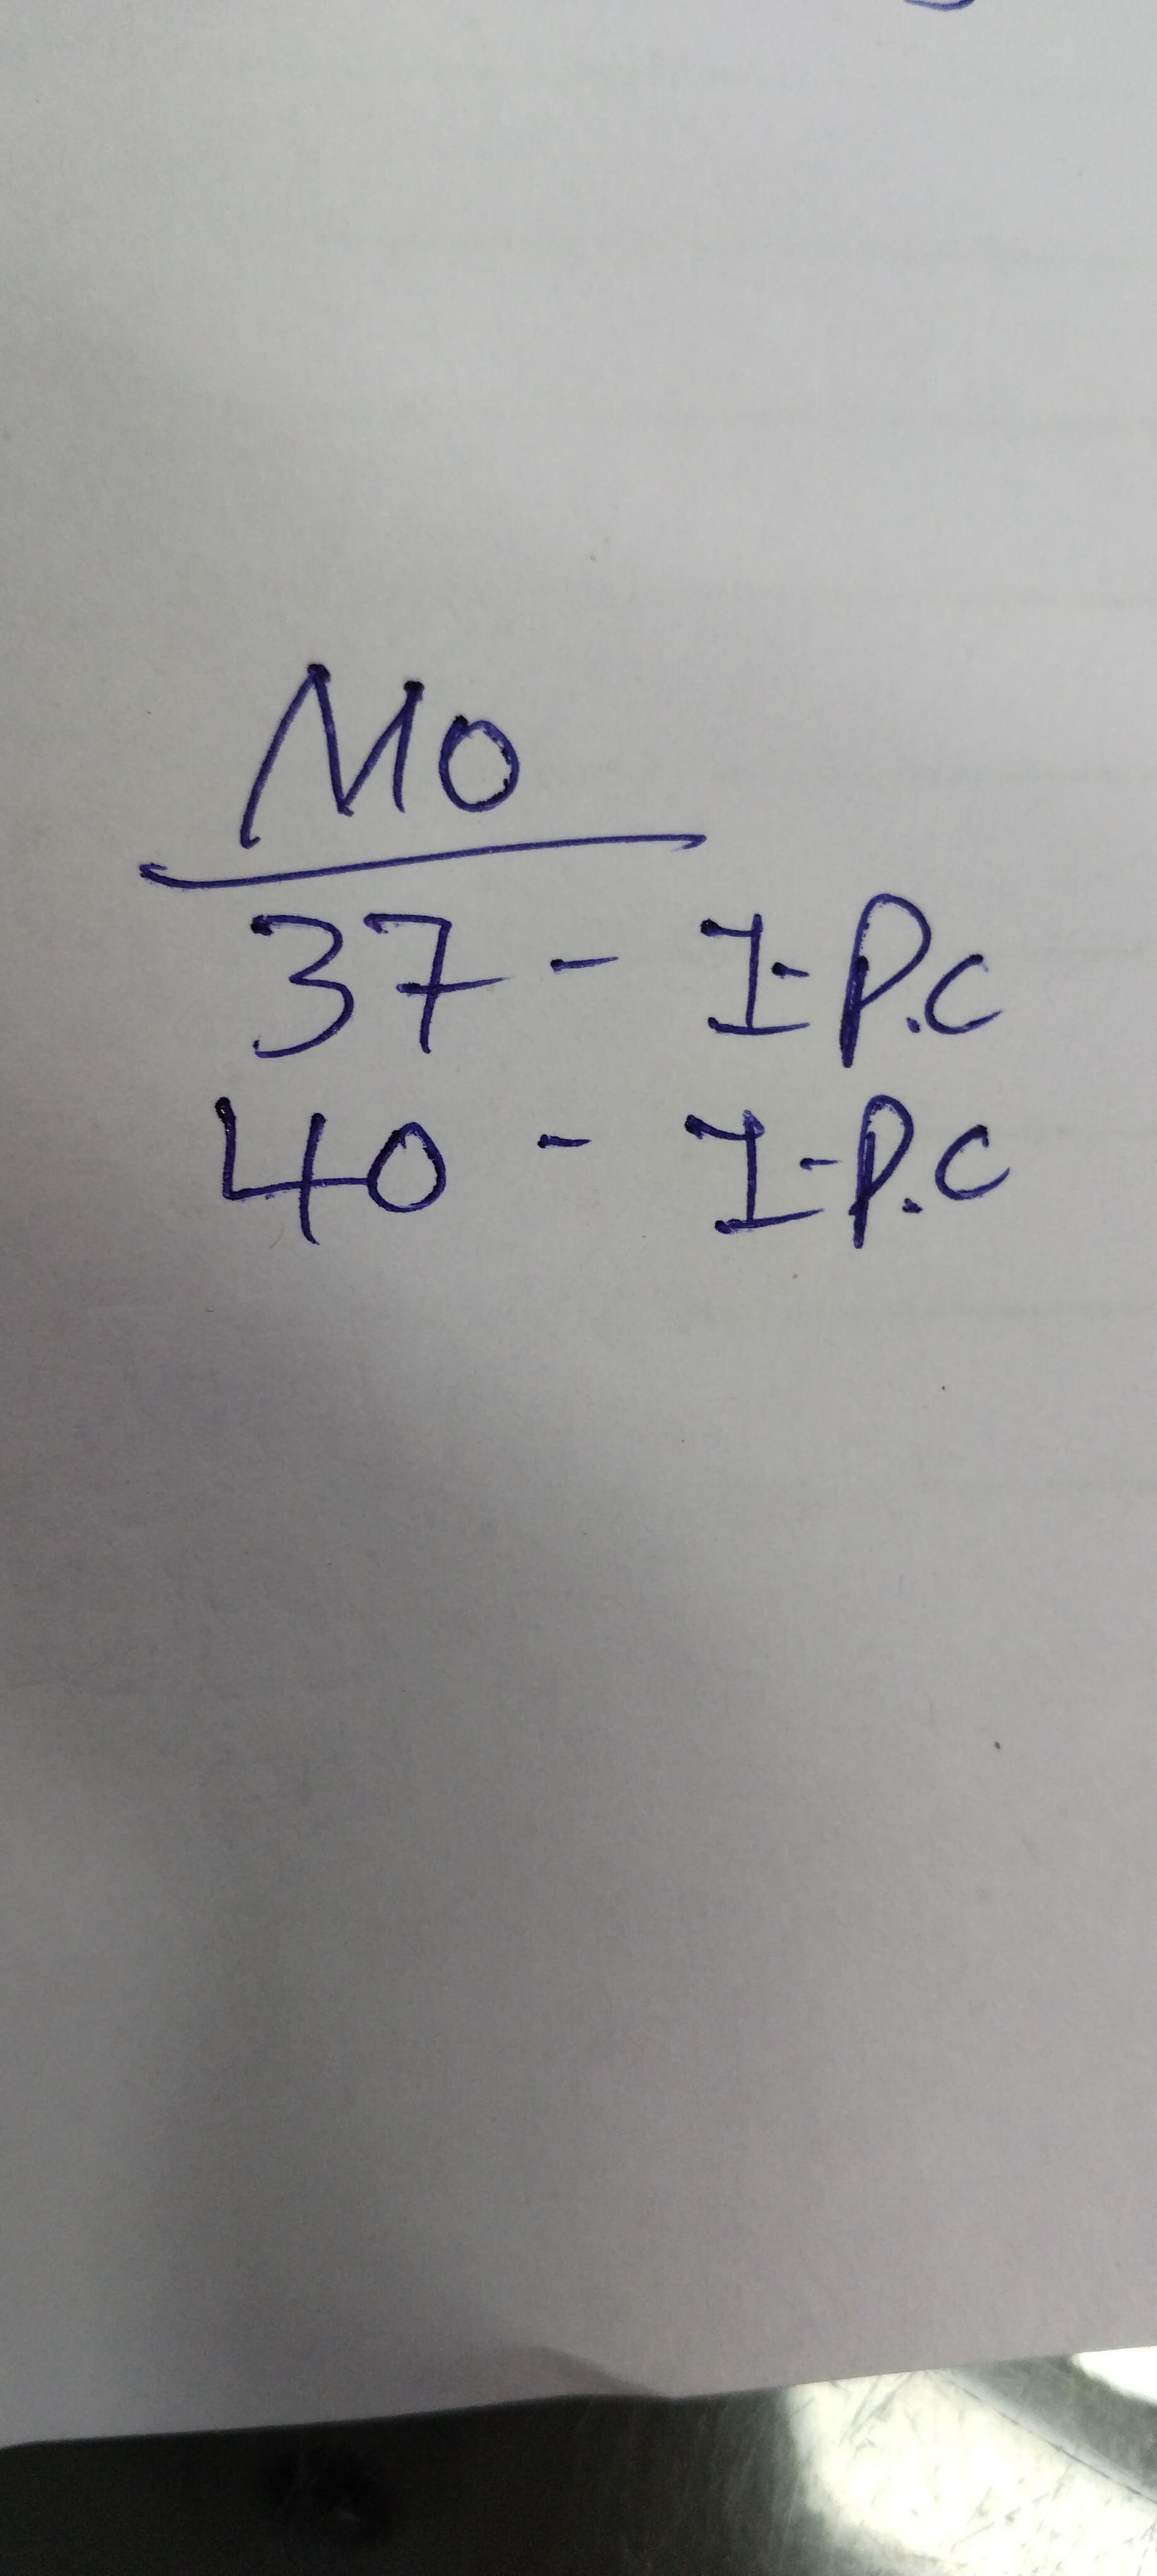 MO
37 - I-P.C
40 - I-P.C